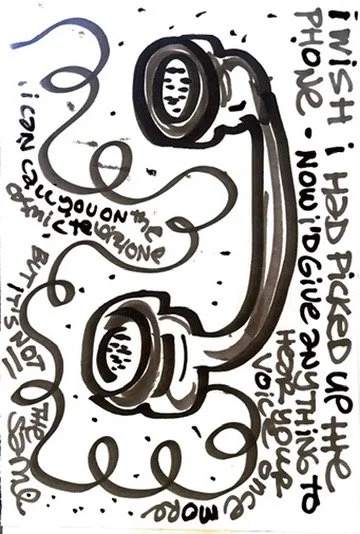 I WISH i HAD PICKED UP tHE
PHONE - NOW i'D GIVE ANYTHING TO
HEAR YOUR
VOICE ONCE
MORE
i CAN CALL YOU ON the
COSMIC telePHONE
BUT IT'S NOT THE
SAME